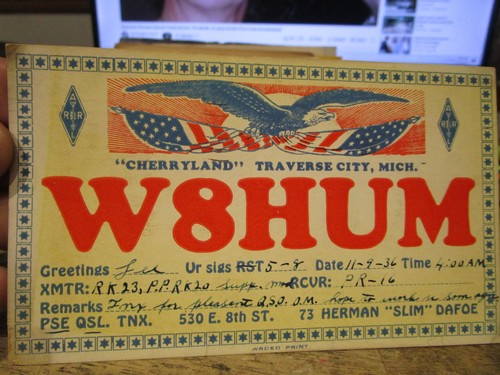 "CHERRYLAND" TRAVERSE CITY, MICH.
W8HUM
Greetings Ur sigs RST 5-8 Date 11-9-36 Time 4:00 AM
XMTR: RK23, P.P. RK20 supp. mod RCVR: PR-16
Remarks Tnx for pleasant Q.S.O. O.M. hope to work u soon agn
PSE QSL. TNX. 530 E. 8th ST. 73 HERMAN "SLIM" DAFOE
WACKO PRINT